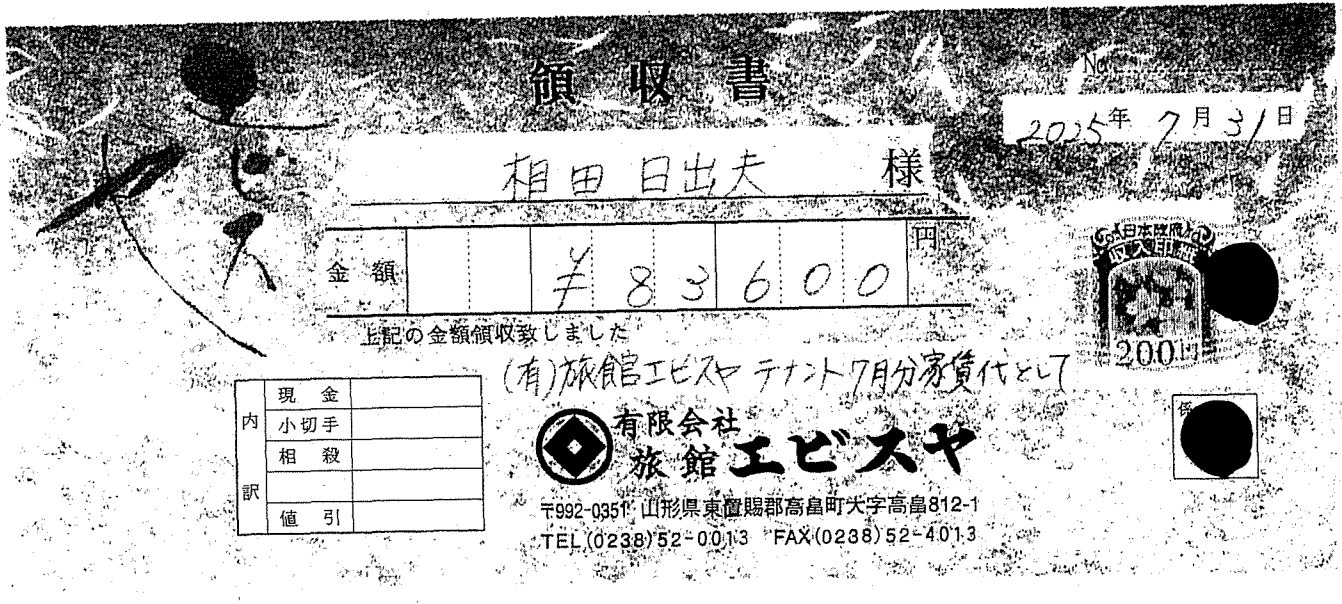 領収書
No.
2025年 7月31日
相田 日出夫 様
金額 ¥83600 円
上記の金額領収致しました
(有)旅館エビスヤ テナント7月分家賃代として
日本政府
収入印紙
200円
内訳
現金
小切手
相殺
値引
有限会社
旅館 エビスヤ
〒992-0351 山形県東置賜郡高畠町大字高畠812-1
TEL(0238)52-0013 FAX(0238)52-4013
係
エビスヤ